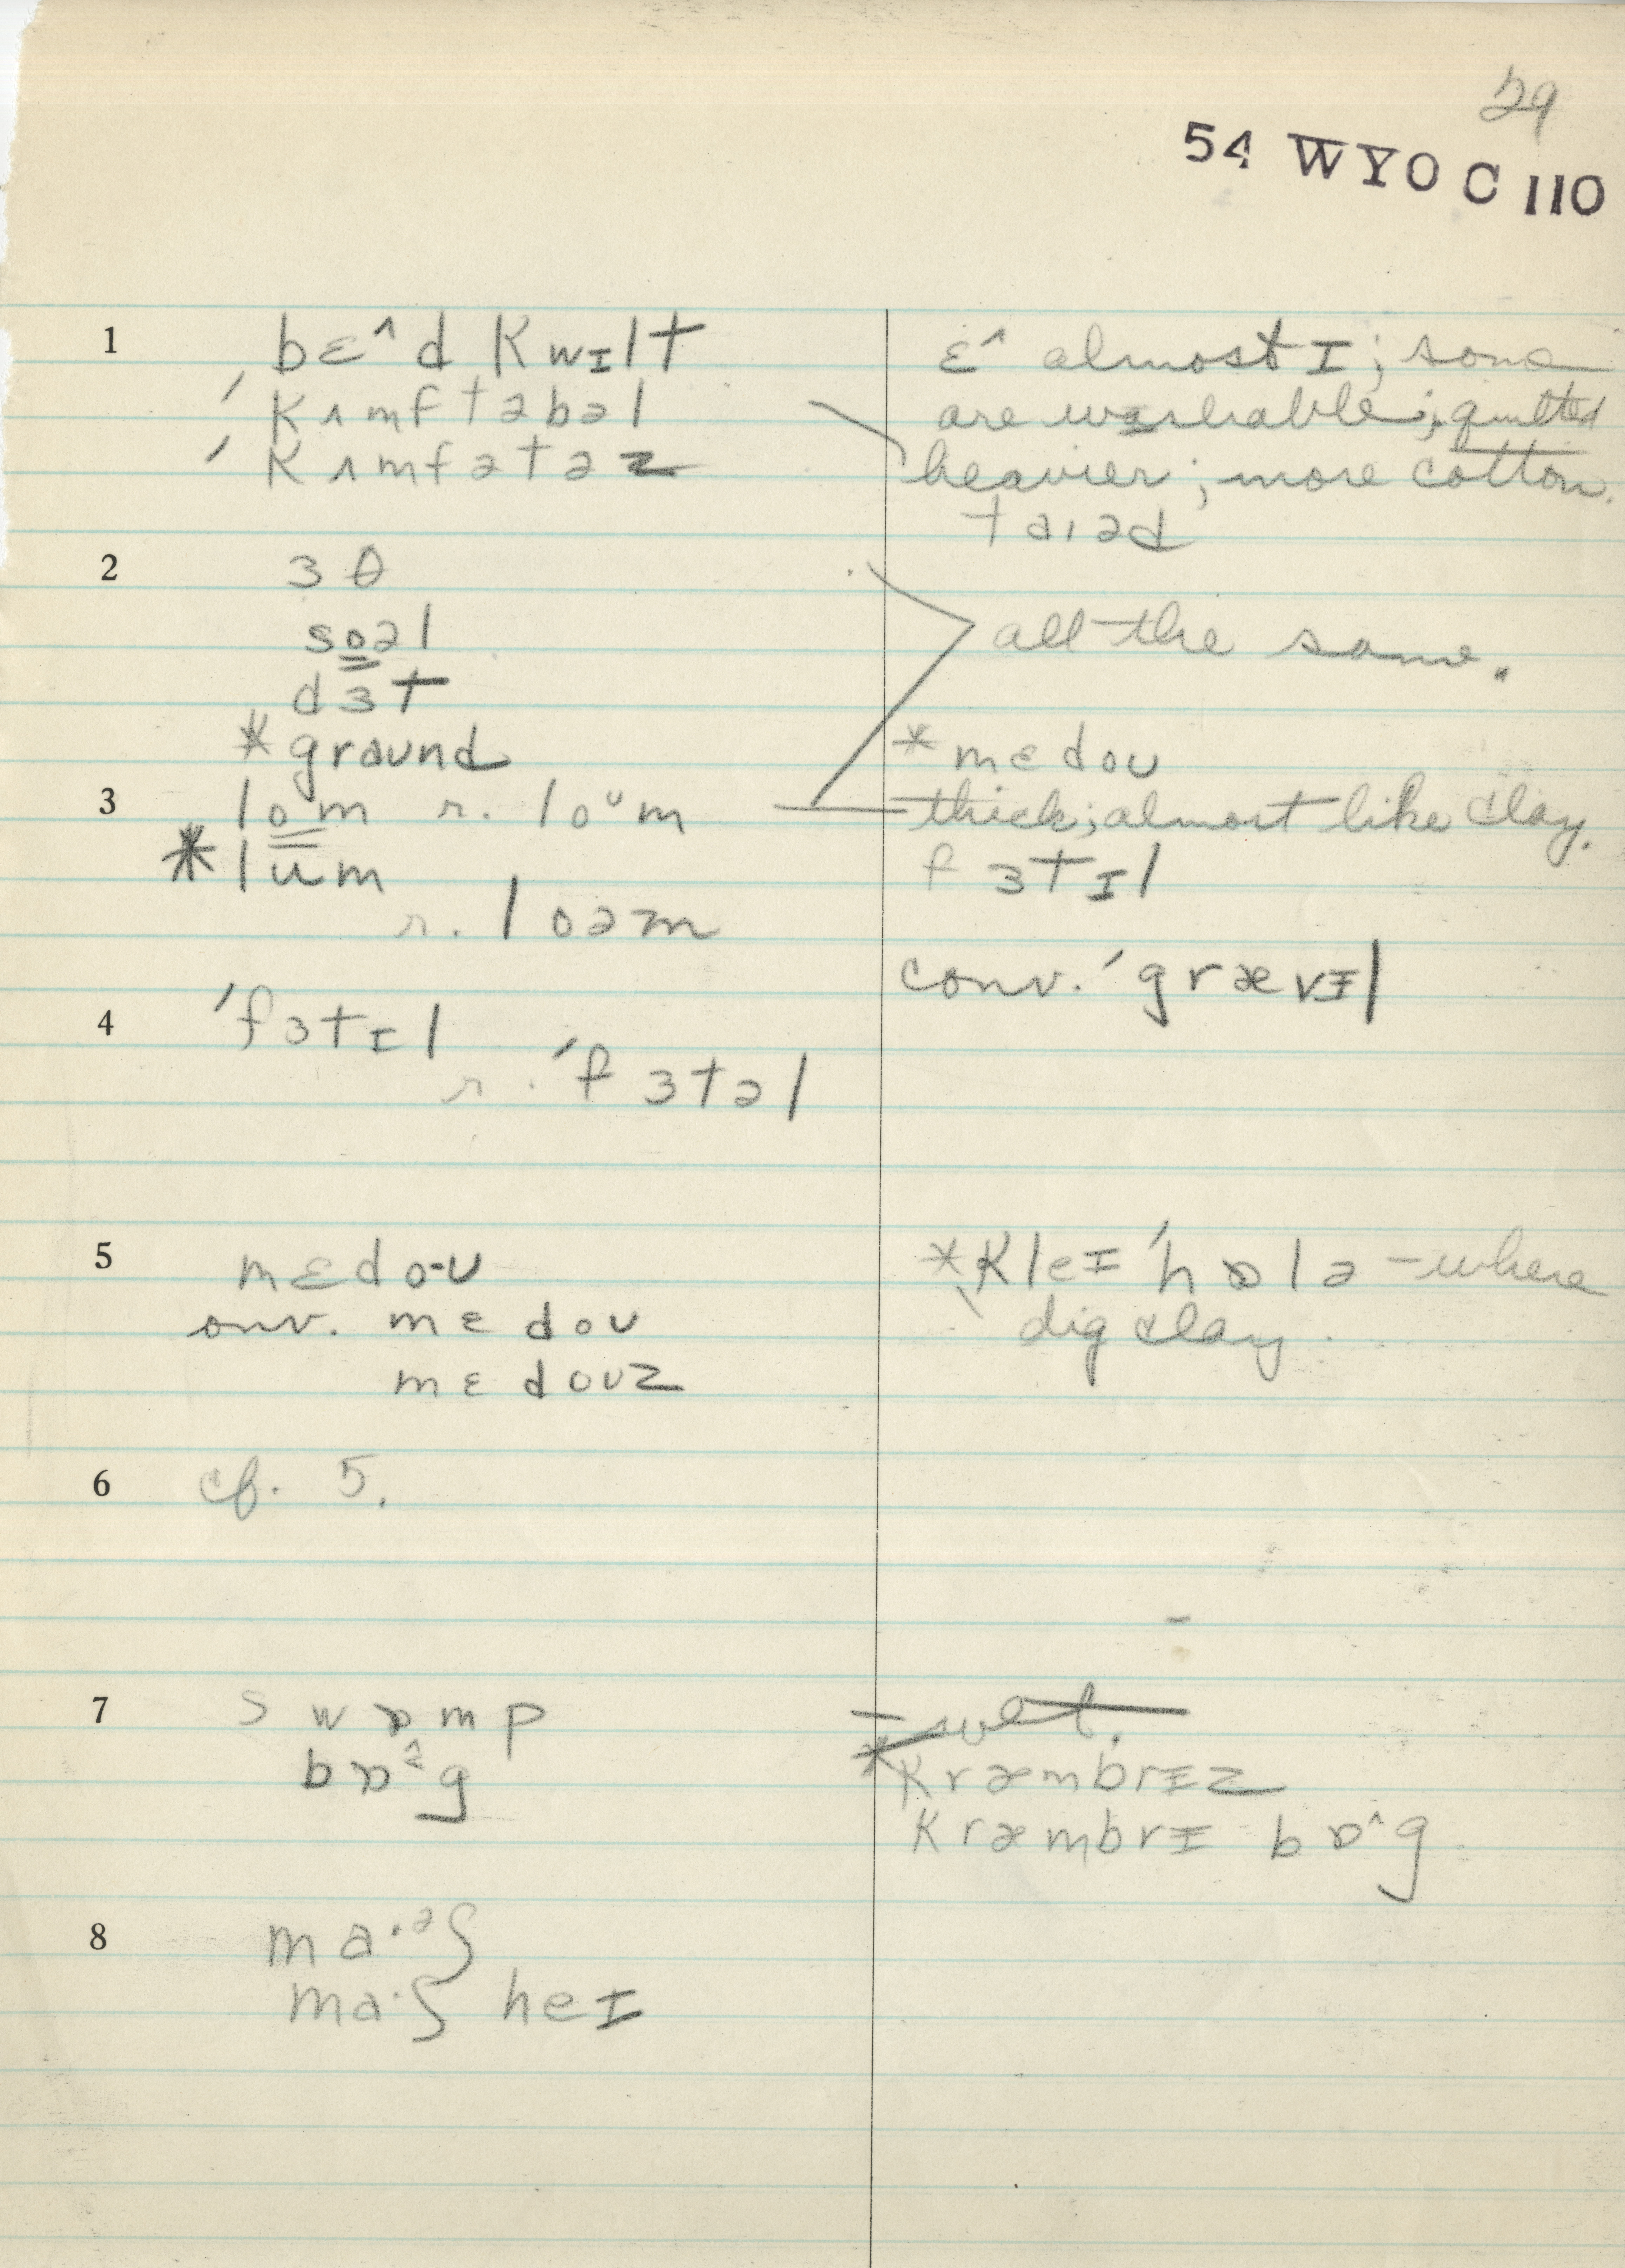 29
54 WYO C 110
1 bɛ^d kwɪlt
ˈkʌmftəbəl
ˈkʌmfətəz
ɛ^ almost ɪ; some
are washable; quilted
heavier; more cotton.
taɪəd
2 ɜθ
soəl
dɜt
*graʊnd
all the same.
*mɛdoʊ
3 lo̳m r. loᶷm
*lum
r. loəm
thick; almost like clay.
fɜtɪl
conv. ˈgrævɪ̵l
4 ˈfɜtɪl
r. ˈfɜtəl
5 mɛdo-ʊ
conv. mɛdoʊ
mɛdoʊz
*ˌkleɪ ˈhɒlə – where
dig clay.
6 cf. 5.
7 swɒmp
bɒ^g
wet.
*kræmbrɪ̵z
kræmbrɪ̵ bɒ^g
8 ma·ᵊʃ
ma·ʃ heɪ